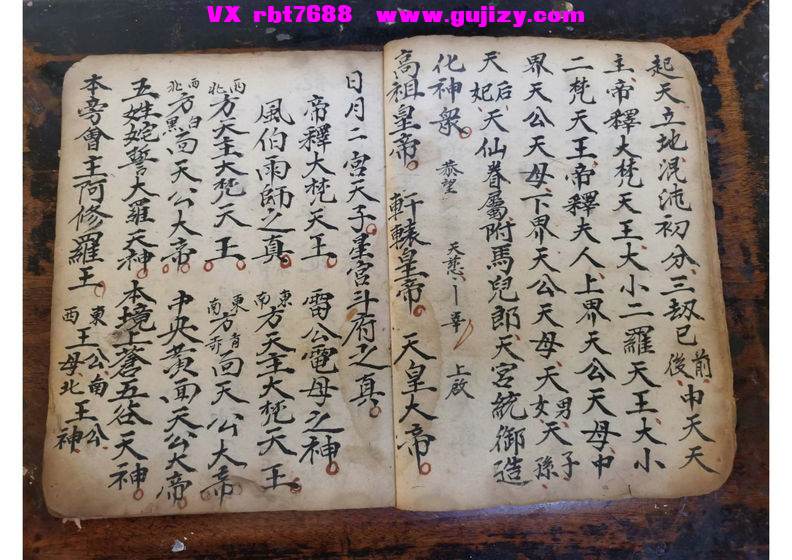 VX rbt7688 www.gujizy.com
起天立地混沌初分三劫已前後中天天
主帝釋大梵天王大小二羅天王大小
二梵天王帝釋夫人上界天公天母中
界天公天母下界天公天母天男女天子孫
天后妃天仙眷屬附馬兒郎天宮統御造
化神眾 恭望 天慈 幸 上啟
高祖皇帝 軒轅皇帝 天皇大帝
日月二宮天子星宮斗府之真
帝釋大梵天王 雷公電母之神
風伯雨師之真 東南方天主大梵天王
西北方天主大梵天王 東南方青赤面天公大帝
西北方白黑面天公大帝 中央黃面天公大帝
五姓姹誓大羅天神 本境上蒼五谷天神
本旁會主阿修羅王 東王公南王公西王母北神